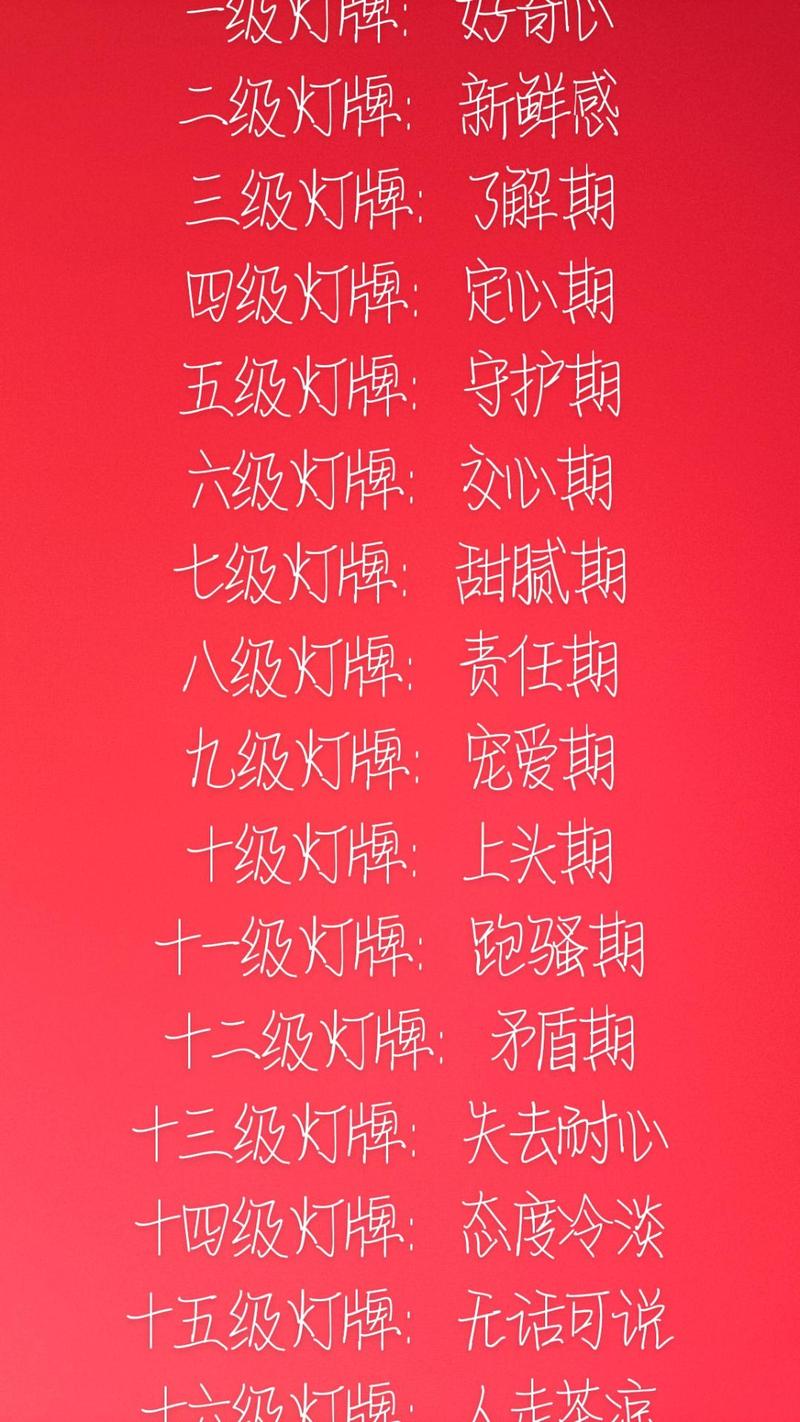 一级灯牌: 好奇心
二级灯牌: 新鲜感
三级灯牌: 了解期
四级灯牌: 定心期
五级灯牌: 守护期
六级灯牌: 交心期
七级灯牌: 甜腻期
八级灯牌: 责任期
九级灯牌: 宠爱期
十级灯牌: 上头期
十一级灯牌: 跑骚期
十二级灯牌: 矛盾期
十三级灯牌: 失去耐心
十四级灯牌: 态度冷淡
十五级灯牌: 无话可说
十六级灯牌: 人走茶凉